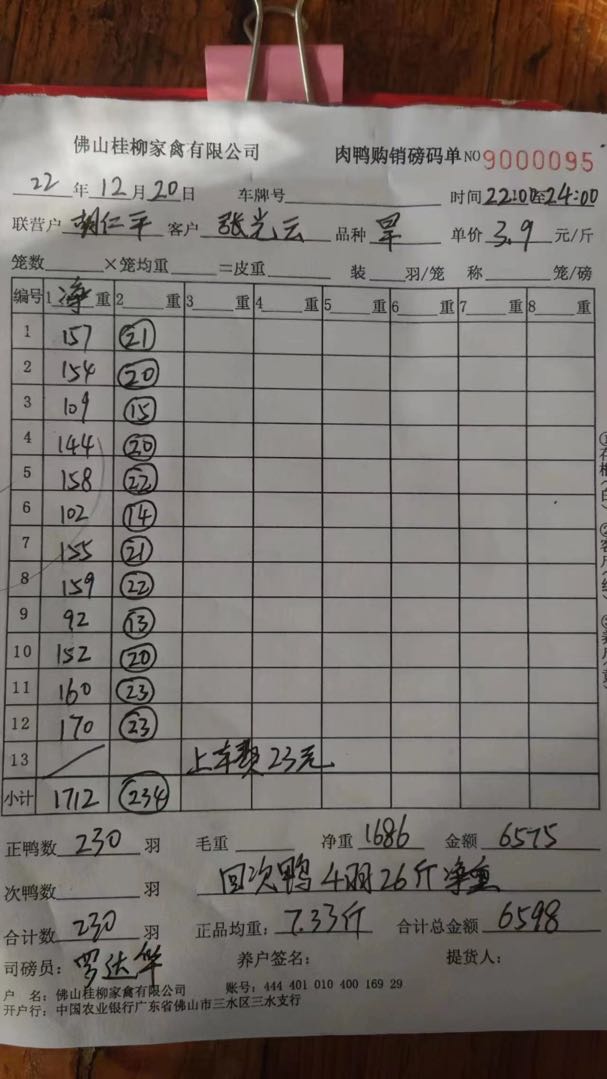 佛山桂柳家禽有限公司 肉鸭购销磅码单 NO 9000095
22 年 12 月 20 日 车牌号 时间 22:00至24:00
联营户 胡仁平 客户 张光云 品种 旱 单价 3.9 元/斤
笼数 ×笼均重 =皮重 装 羽/笼 称 笼/磅
编号 1 净 重 2 重 3 重 4 重 5 重 6 重 7 重 8 重
1 157 21
2 154 20
3 109 15
4 144 20
5 158 22
6 102 14
7 155 21
8 159 22
9 92 13
10 152 20
11 160 23
12 170 23
13 上车费23元
小计 1712 234
正鸭数 230 羽 毛重 净重 1686 金额 6575
次鸭数 羽 回次鸭4羽26斤净重
合计数 230 羽 正品均重: 7.33斤 合计总金额 6598
司磅员: 罗达华 养户签名: 提货人:
户 名: 佛山桂柳家禽有限公司 账号: 444 401 010 400 169 29
开户行: 中国农业银行广东省佛山市三水区三水支行